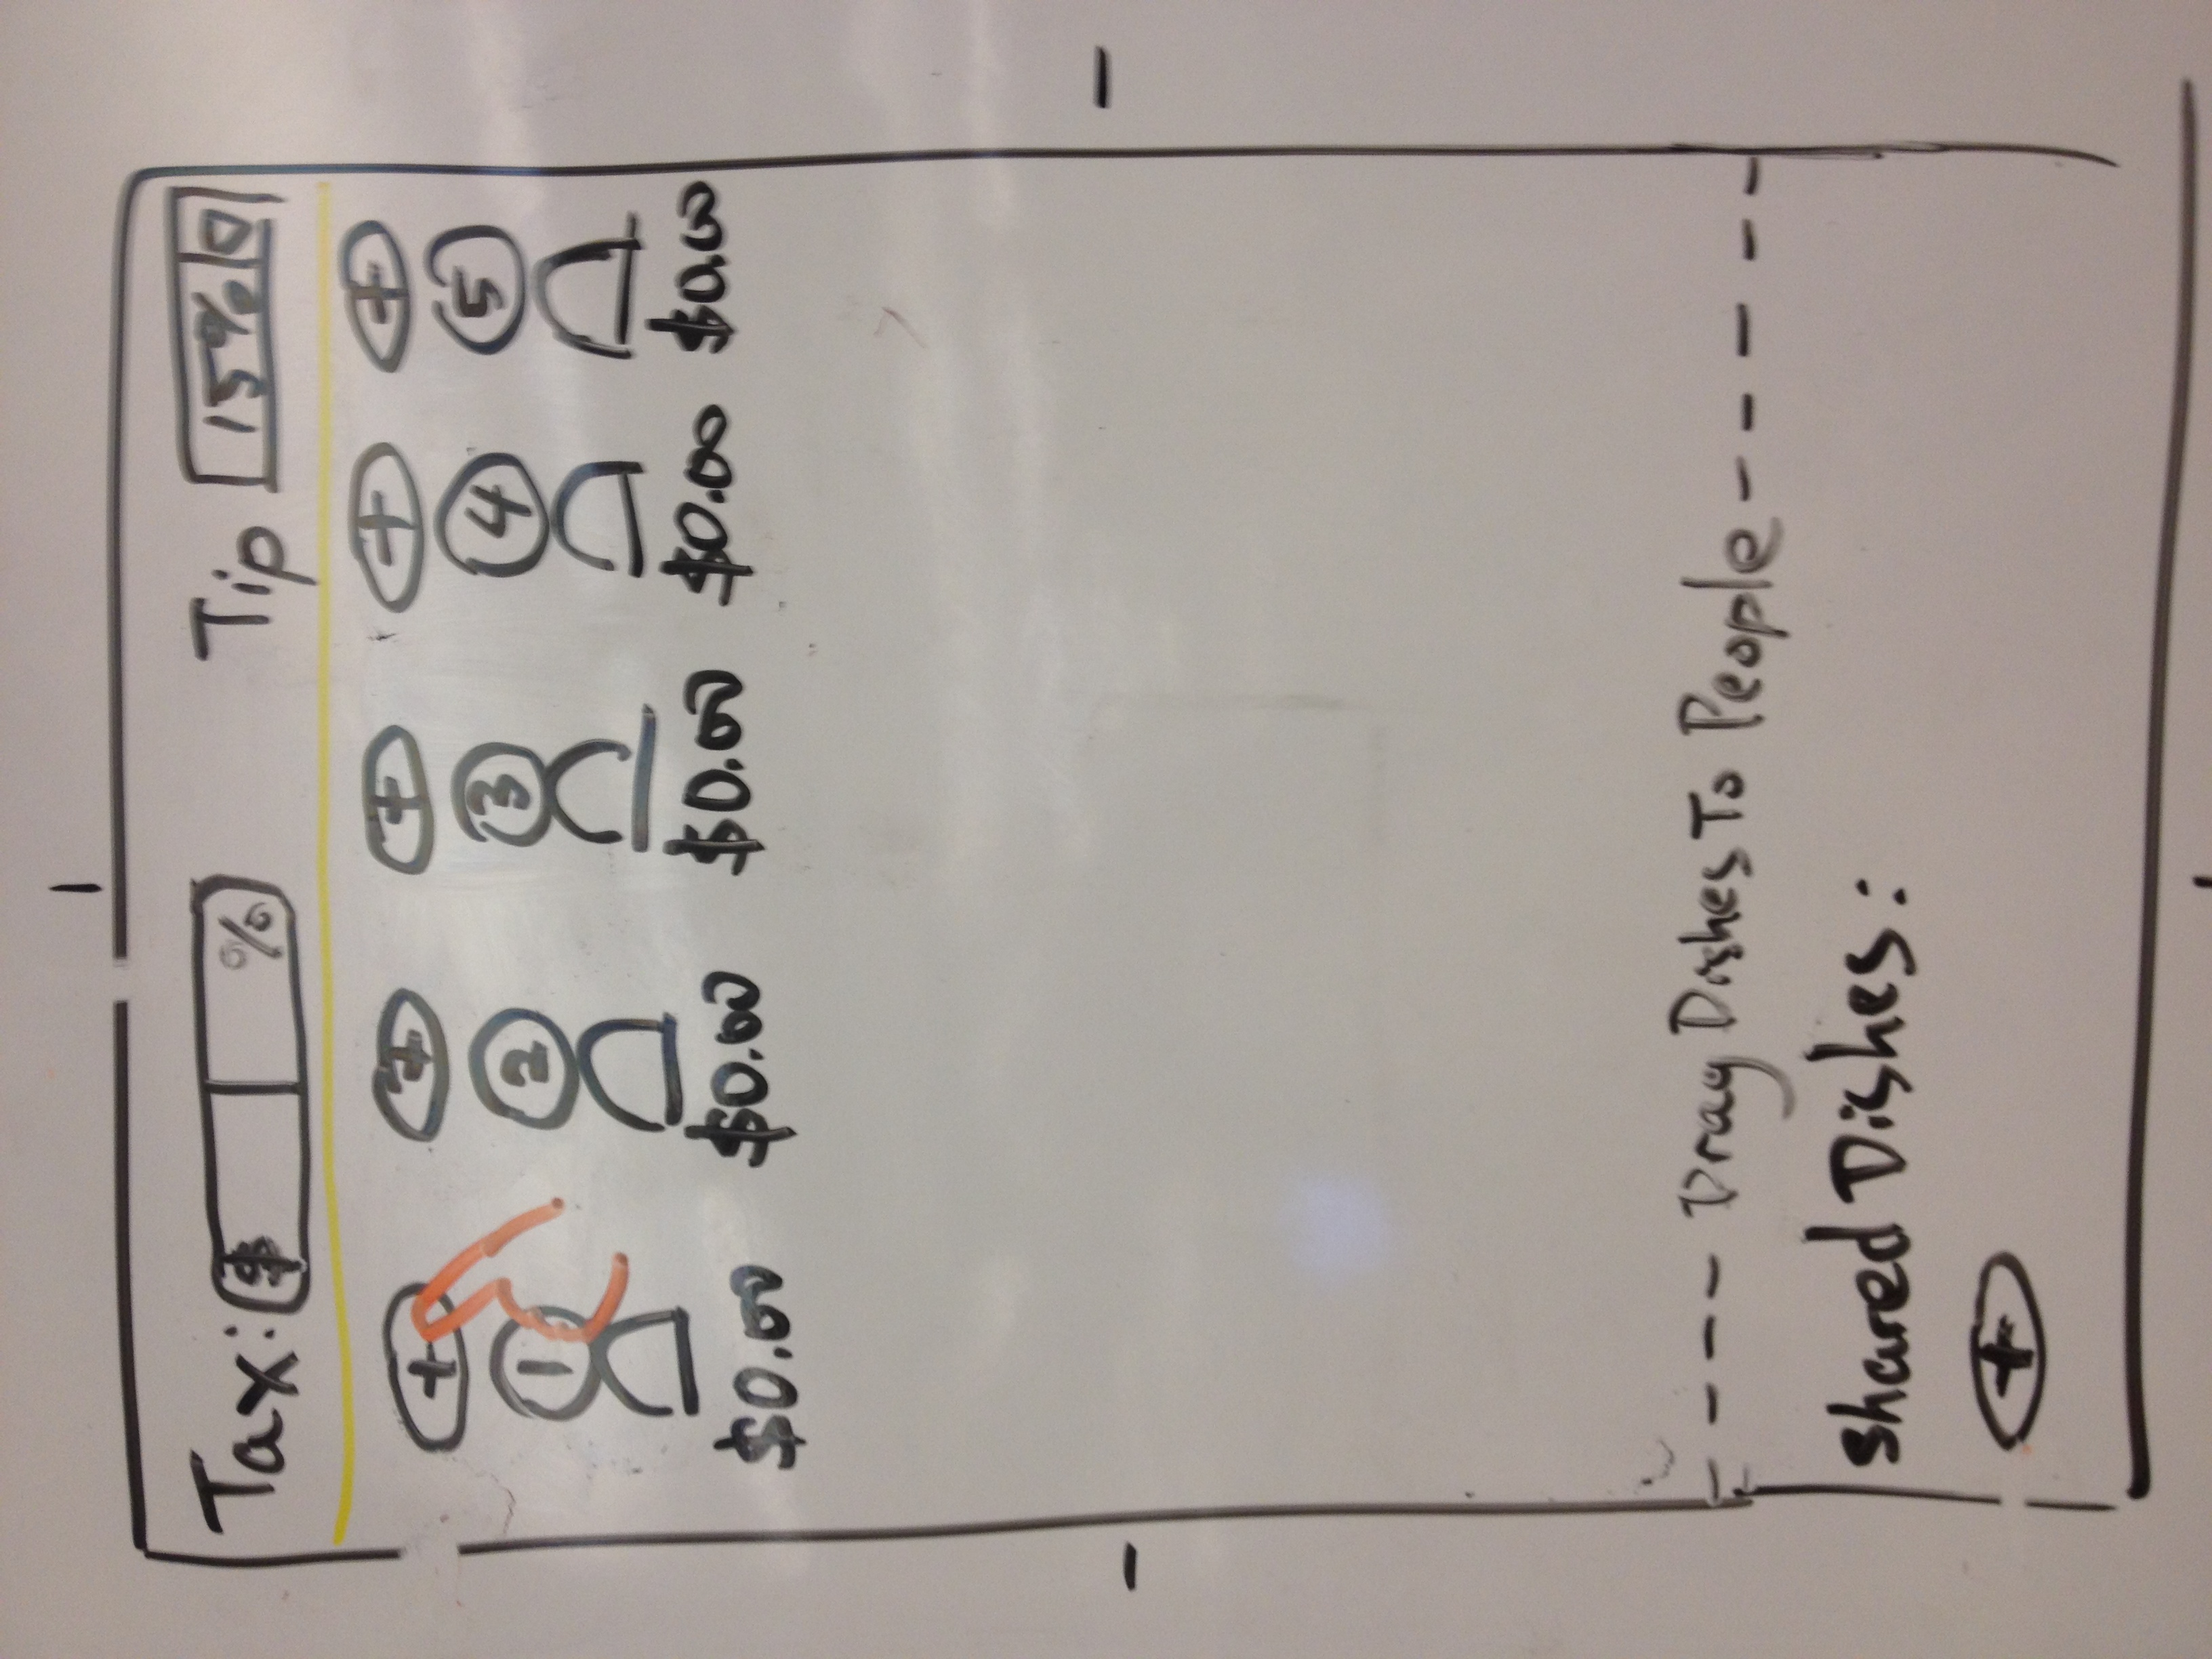 Tax: $ %   Tip 15%
+ + + + +
1 2 3 4 5
$0.00 $0.00 $0.00 $0.00 $0.00
---- Drag Dishes To People -----
Shared Dishes:
+